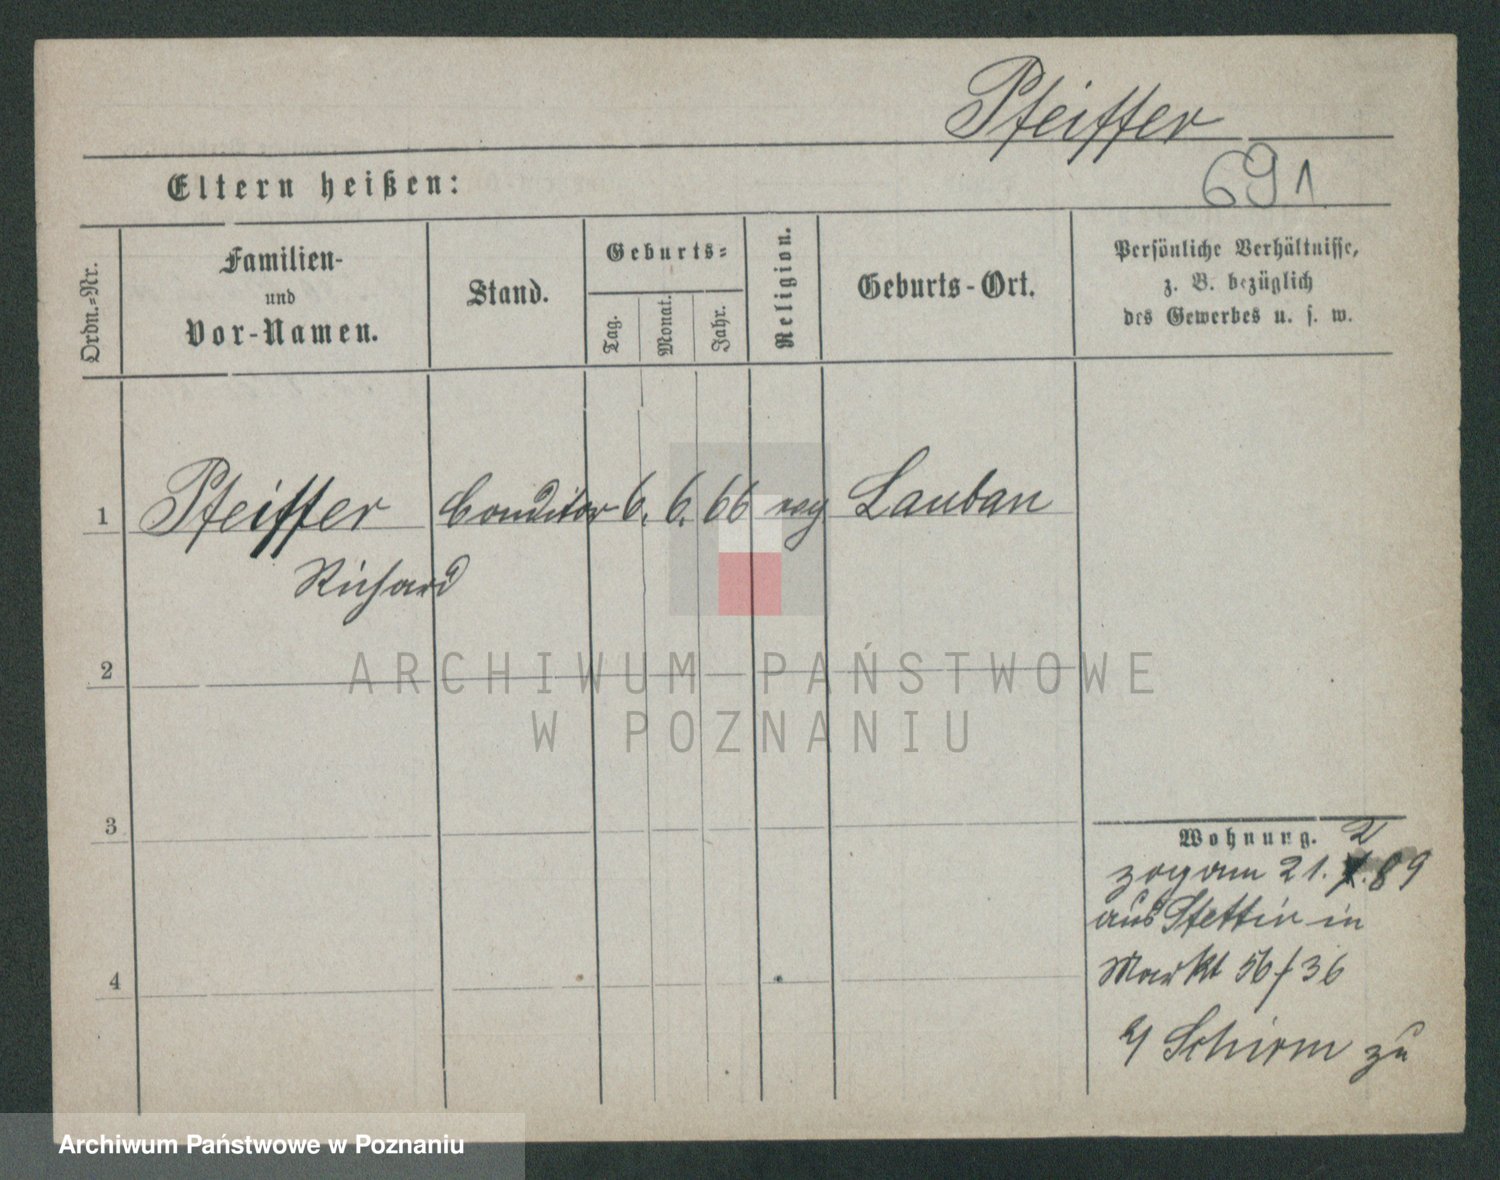 Pfeiffer
691
Eltern heißen:
Ordn.=Nr.
Familien-
und
Vor-Namen.
Stand.
Geburts=
Tag.
Monat.
Jahr.
Religion.
Geburts-Ort.
Persönliche Verhältnisse,
z. B. bezüglich
des Gewerbes u. s. w.
1 Pfeiffer Conditor 6. 6. 66 evg Lauban
Richard
2
3
4
Wohnung.
2
zog am 21. 89
aus Stettin in
Markt 56/36
Schirm zu
ARCHIWUM PAŃSTWOWE
W POZNANIU
Archiwum Państwowe w Poznaniu